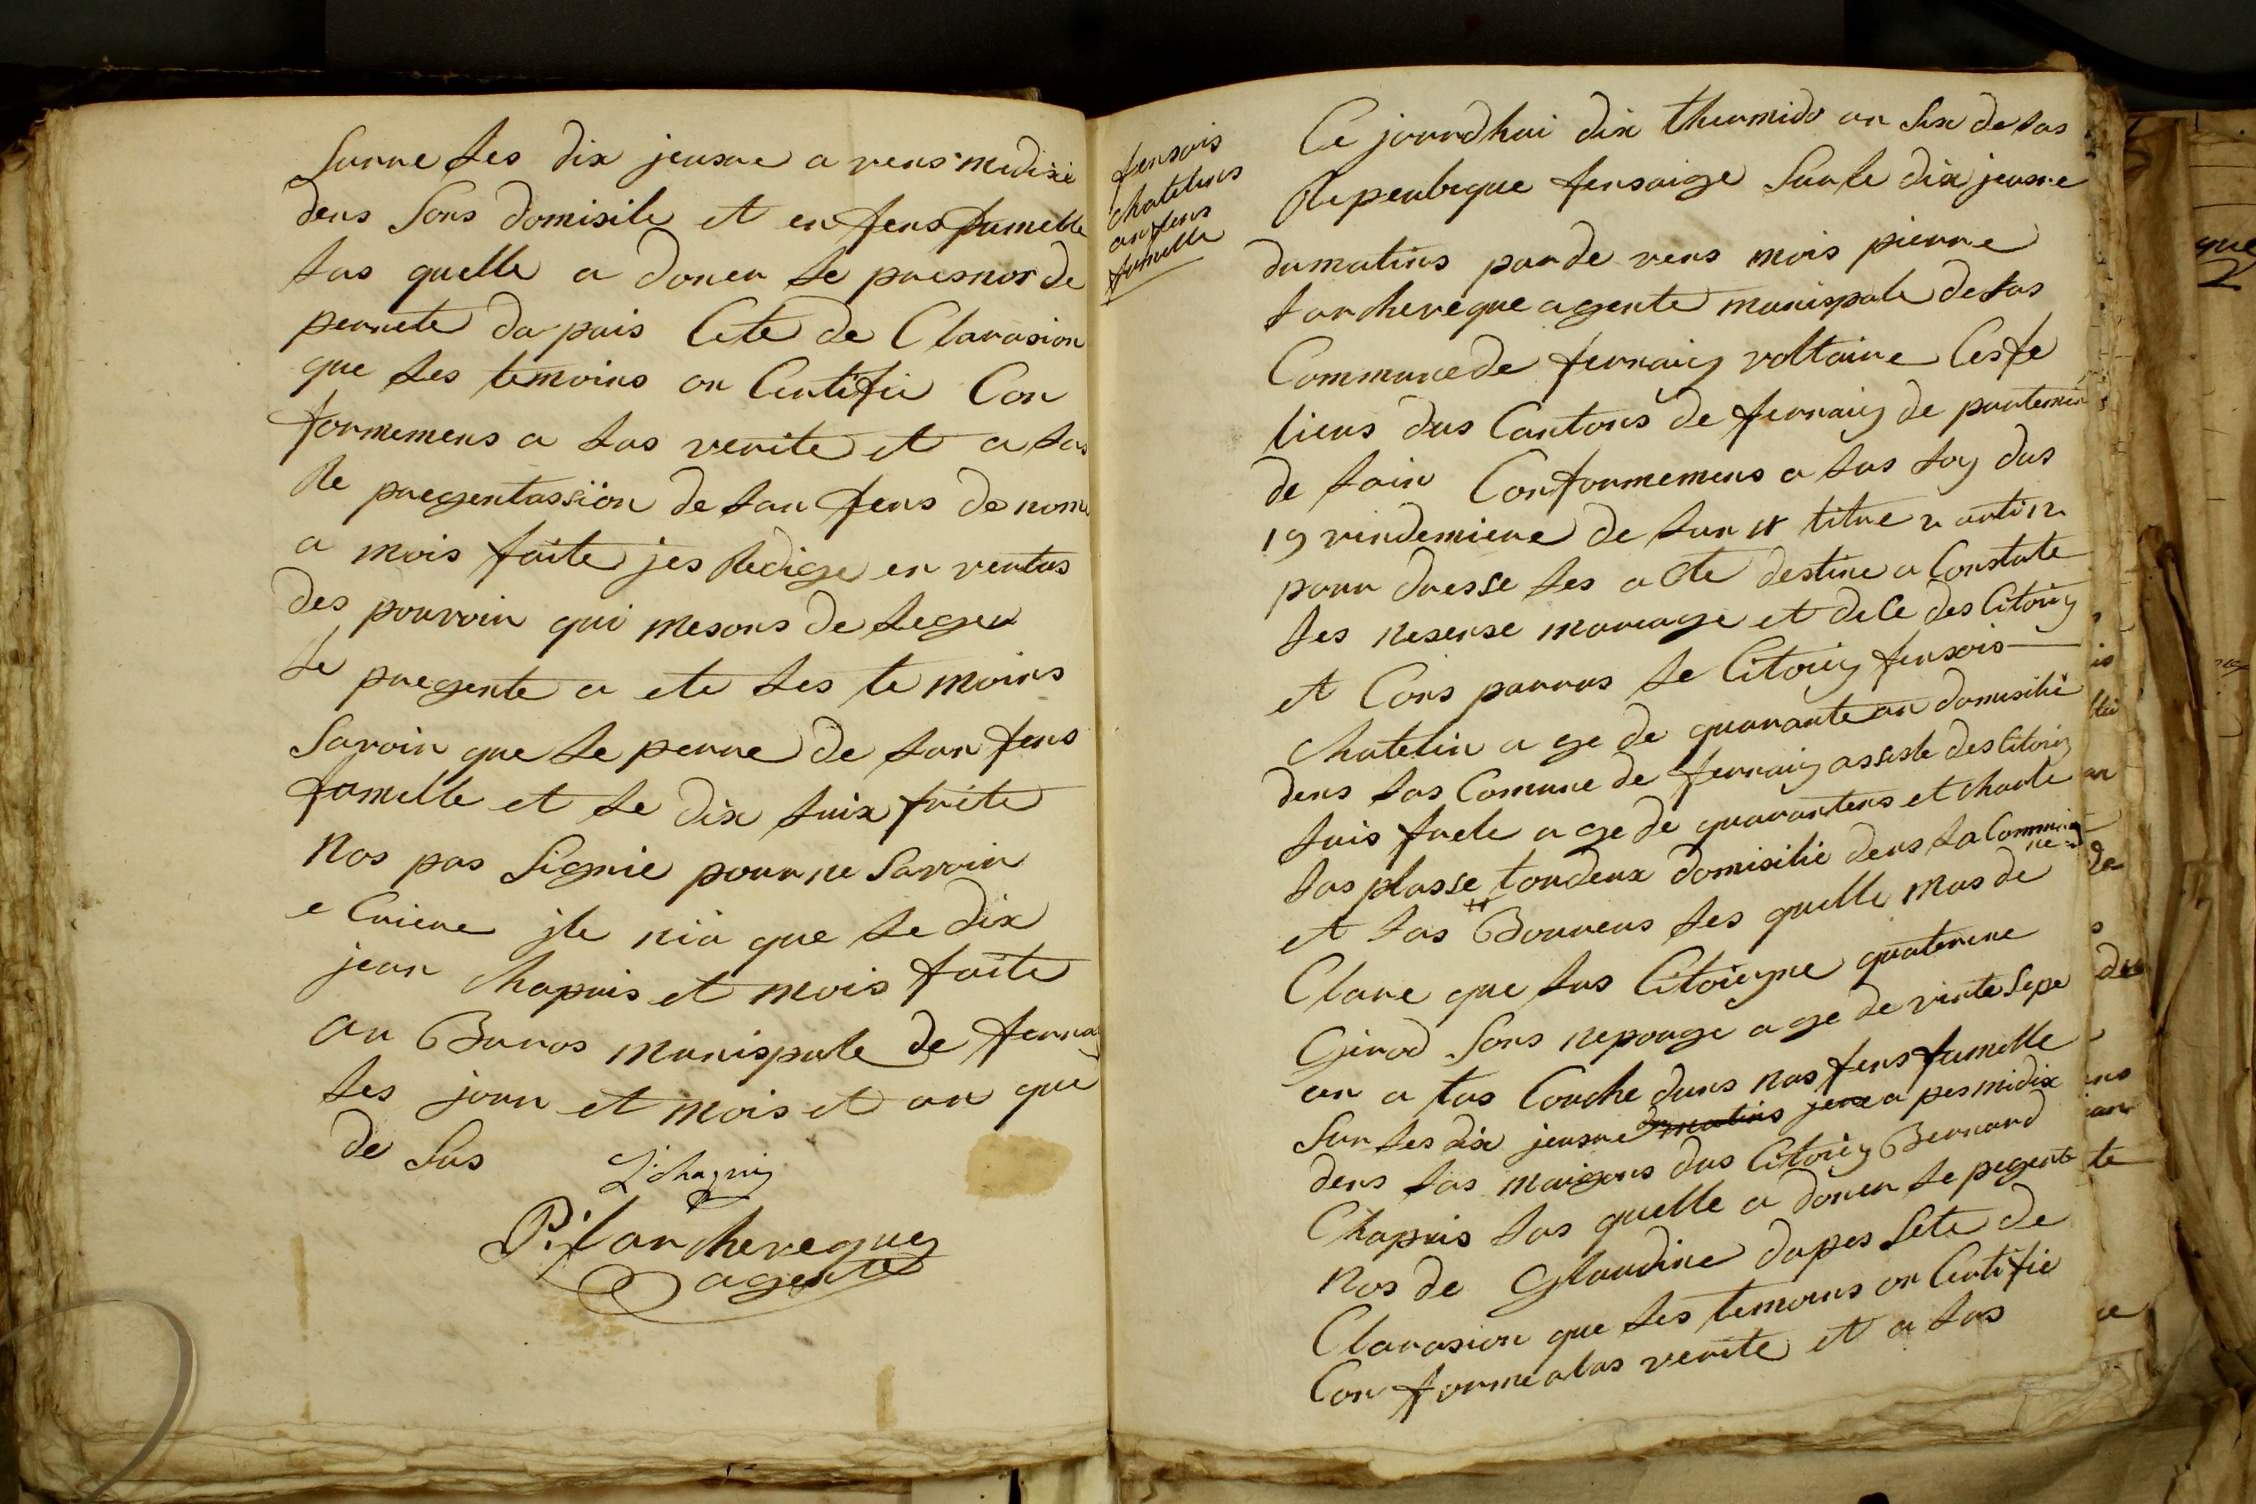 Surre les dix jeusre a vens midixi
dens sons domisile et en fens fumelle
las quelle a doner le presnos de
pernete da pais Cete de Clarasion
que les temoins on Certifie Con
formemens a las verite et a las
Re pregentassiön de lan fens de nome
a mois faite jes Redige en vertus
des pouvoir qui mesons de lege
le pregente a ete les te moins
Savoir que le perre de lan fens
famelle et le dix luix frite
Nos pas Signie pour ne Savoir
e Criere jle niä que le dix
jean Chapuis et mois faite
au Buros munispale de ferna
les jour et mois et an que
de Sus
P. larcheveque
agente
fensois
chatelins
an fens
fumelle
Ce jourdhui dix thermido an Six de las
Repeubique fensaige Sur le dix jeusre
du matins par de vens mois pierre
larcheveque agente munispale de las
Commune de fernaiy voltaire Cesfe
liens dus Cantons de fernaiy de partemen
de lain Conformemens a las loy dus
19 vendemiere de lan 11 titre 2 arti 12
pour dresse les acte destine a Constate
les nesense mariage et dece des Citoiy
et Cons parrus le Citoiy fensois
Chatelin a ge de quarante an domisilie
dens las Comune de fernaiy assiste des Citoiy
luis frete a ge de quarantens et Charle
las plasse toudeux domisilie dens la Commu
ne
et las Bourrens les quelle mas de
Clare que las Citoiegne quaterine
Girod Sons nepouge a ge de vinte Sepe
an a tas Couche duns nas fens fumelle
Sur les dix jeusre du matins jeuse a pes midix
dens las maigons dus Citoiy Bernard
Chapuis las quelle a doner le pegente
Nos de Glaudine dapes Sete de
Clarasion que les temoins on Certifie
Con forme alas verite et a las